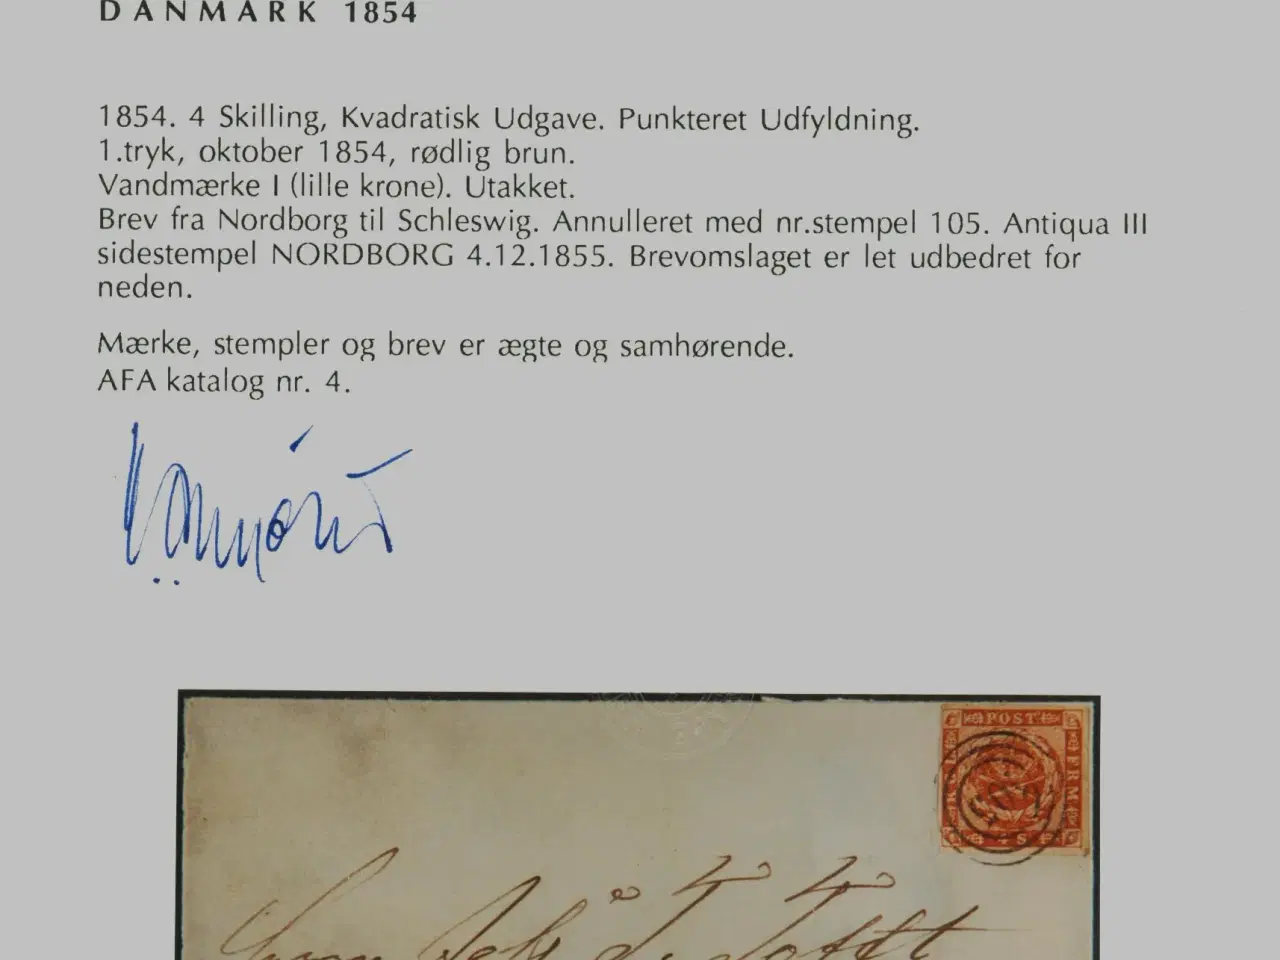 DANMARK 1854
1854. 4 Skilling, Kvadratisk Udgave. Punkteret Udfyldning.
1.tryk, oktober 1854, rødlig brun.
Vandmærke I (lille krone). Utakket.
Brev fra Nordborg til Schleswig. Annulleret med nr.stempel 105. Antiqua III
sidestempel NORDBORG 4.12.1855. Brevomslaget er let udbedret for
neden.
Mærke, stempler og brev er ægte og samhørende.
AFA katalog nr. 4.
POST
FRMA
4 S